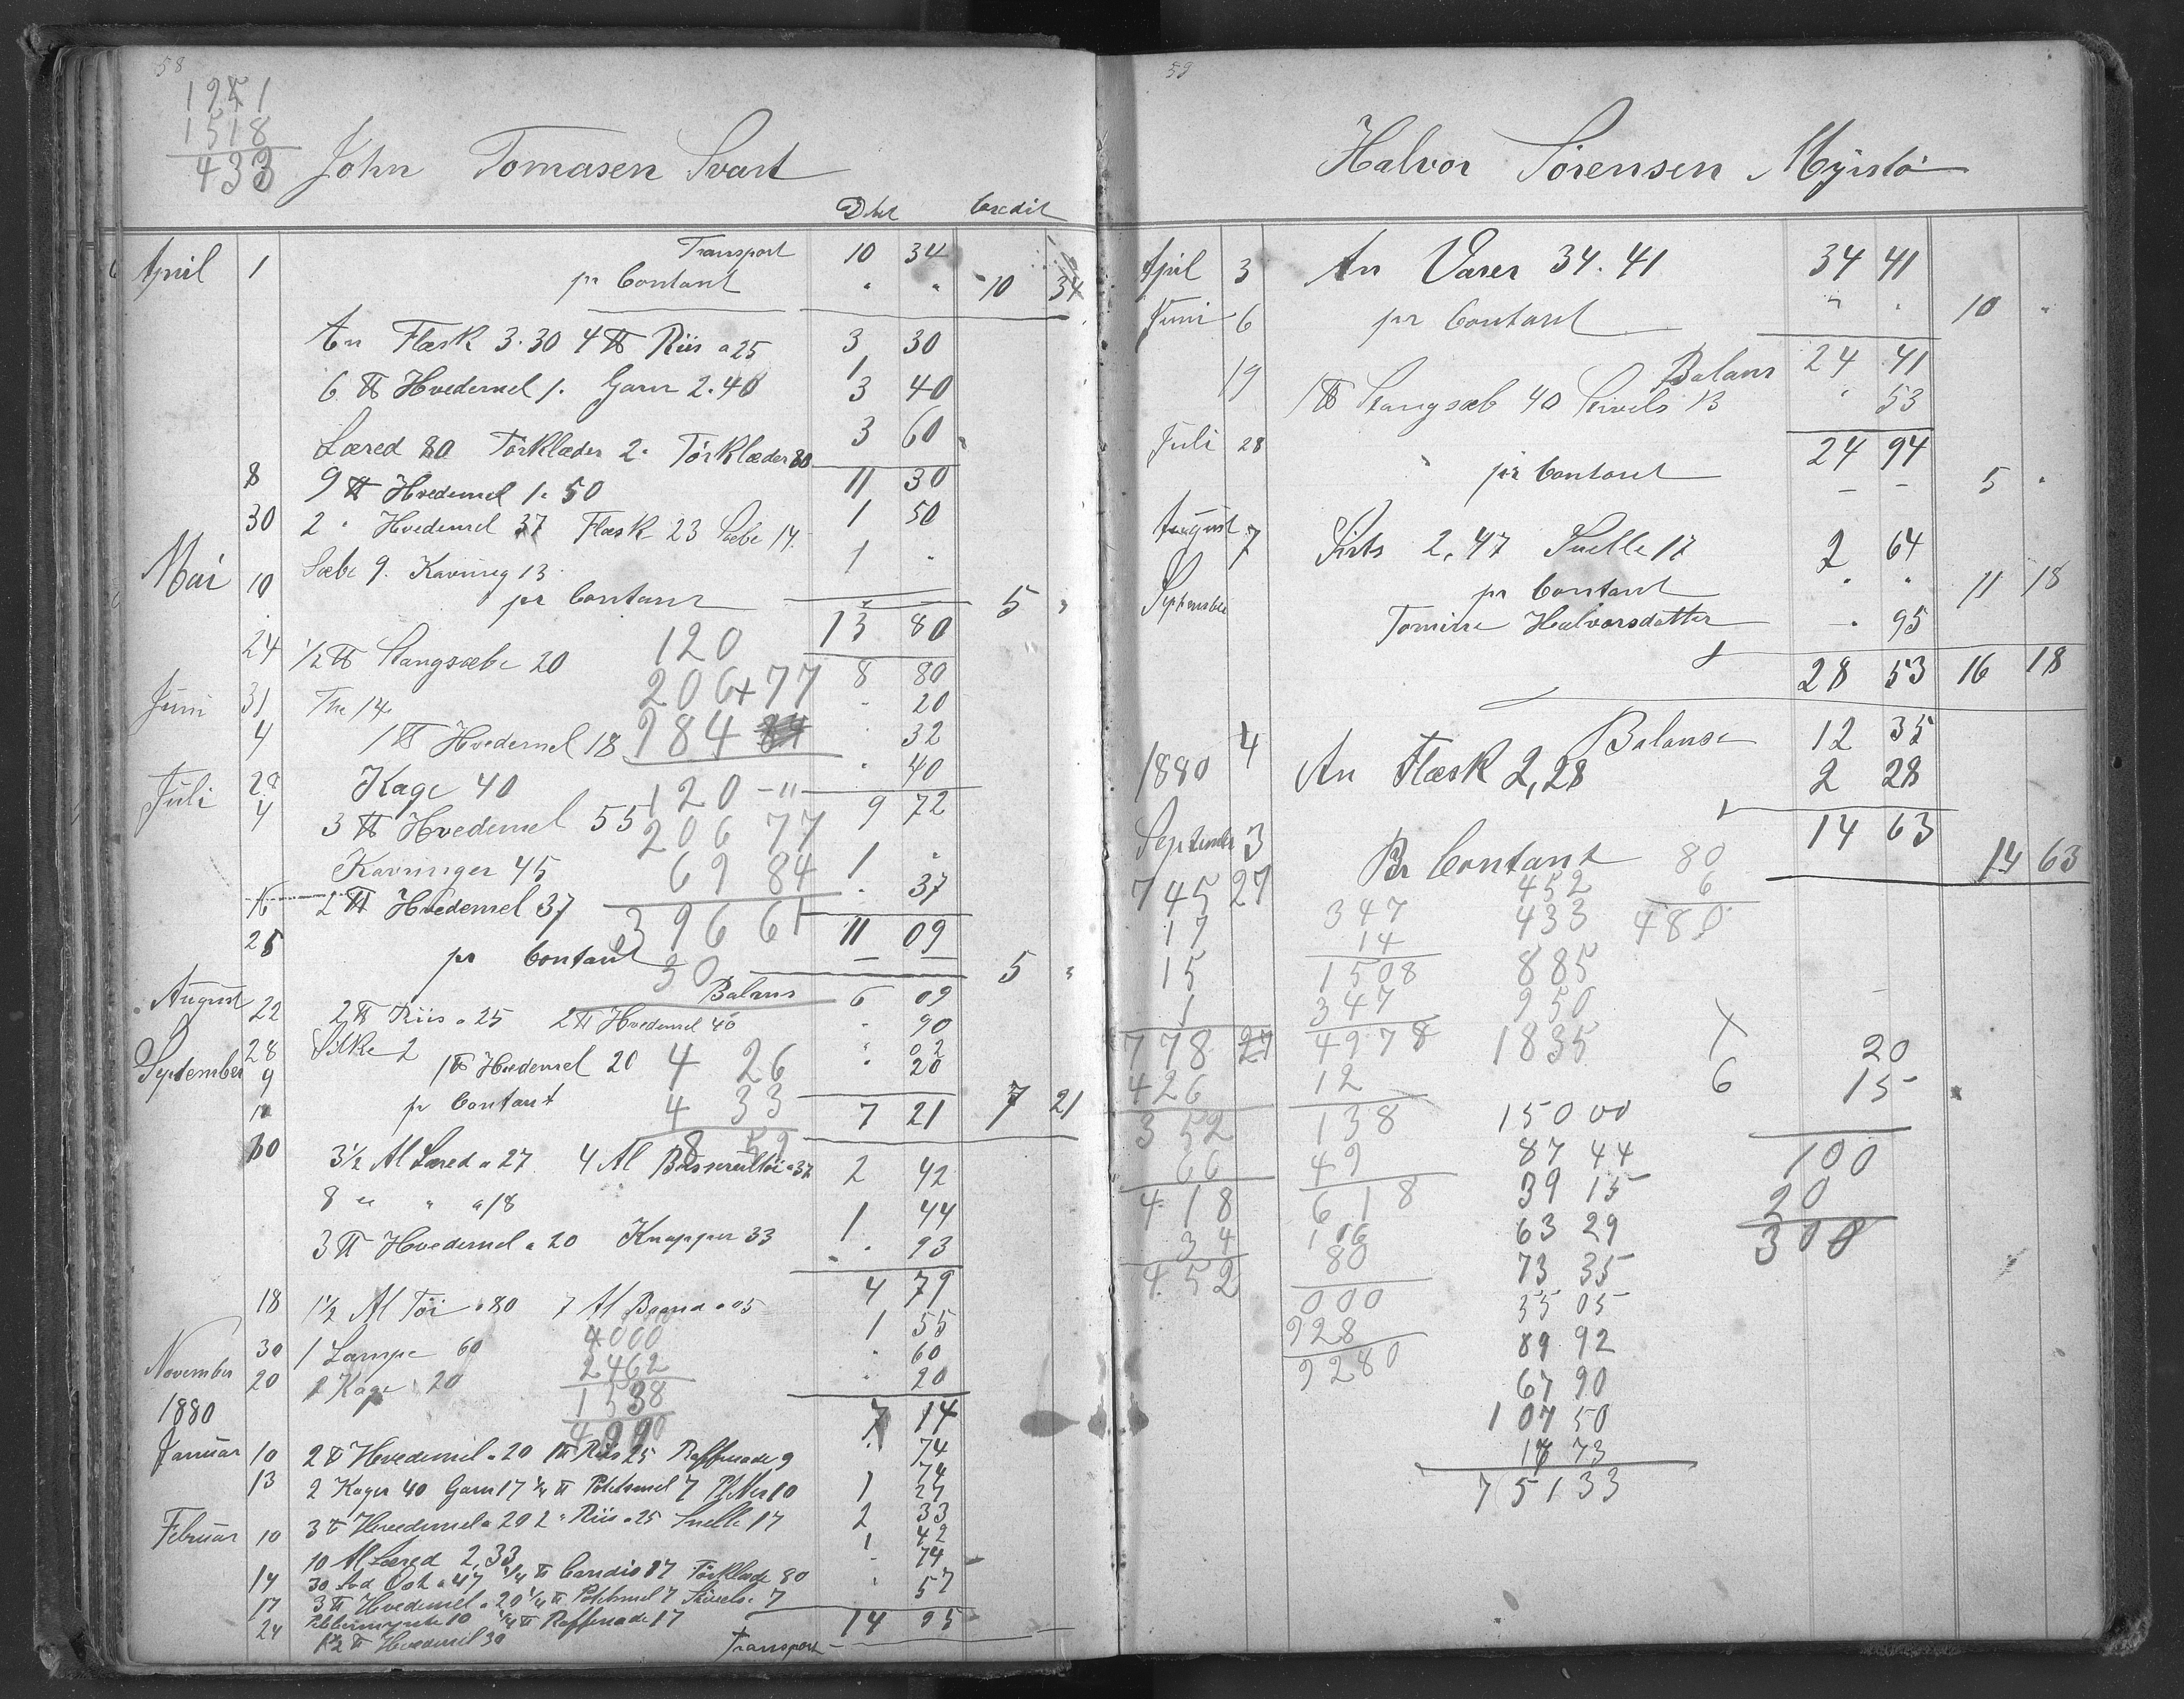 58
1951
1518
433
John Tomasen Svart
Debet Credit
April 1 Transport 10 34
pr Contant " " 10 34
An Flæsk 3.30 4 ℔ Riis a 25 3 30
1
6 ℔ Hvedemel 1. Garn 2.40 3 40
Læred 80 Törklæder 2. Törklæder 80 3 60
8 9 ℔ Hvedemel 1.50 11 30
30 2 " Hvedemel 37 Flæsk 23 Sæbe 14 1 50
Mai Sæbe 9. Kavring 13 1 "
10 pr Contant 5 "
13 80
24 1/2 ℔ Stangsæbe 20 120 8 80
Juni 31 The 14 206+77 " 20
4 1 ℔ Hvedemel 18 984 " 32
28 Kage 40 " 40
Juli 4 3 ℔ Hvedemel 55 120 -"- 9 72
206 77
Kavringer 45 69 84 1 "
16 2 ℔ Hvedemel 37 396 61 " 37
11 09
25 pr Contant 30 — — 5 "
Balans 6 09
August 22 2 ℔ Riis a 25 2 ℔ Hvedemel 40 " 90
28 Silke 2 " 02
September 9 1 ℔ Hvedemel 20 4 26 " 20
11 pr Contant 4 33 7 21 7 21
8 59
30 3 1/2 Al Læred a 27 4 Al a 37 2 42
8 " " a 18 1 44
3 ℔ Hvedemel a 20 Knapper 33 " 93
4 79
18 1 1/2 Al Töi a 80 7 Al Baand a 05 1 55
30 1 Lampe 60 4000 " 60
November 20 1 Kage 20 2462 " 20
1538
1880 4000 7 14
Januar 10 2 ℔ Hvedemel a 20 1 ℔ Riis 25 Raffenade 9 " 74
74
13 2 Kager 40 Garn 17 1/4 ℔ Potetmel 7 10 1 27
Februar 10 3 ℔ Hvedemel a 20 2 " Riis a 25 Snelle 17 2 33
10 Al Læred 2,33 1 42
14 30 Lod Ost a 47 1/4 ℔ Candis 17 Törklæde 80 " 74
17 3 ℔ Hvedemel a 20 1/4 ℔ Potetmel 7 Stivels. 7 " 57
24 Pebbermynte 10 1/4 ℔ Raffenade 17 14 95
1 1/2 ℔ Hvedemel 30 Transport
59
Halvor Sörensen Myrstö
April 3 An Varer 34.41 34 41
Juni 6 pr Contant " " 10 "
Balans 24 41
19 1 ℔ Stangsæb 40 Stivels 13 " 53
Juli 28 24 94
" pr Contant — — 5 "
August 7 Sirts 2,47 Snelle 17 2 64
September pr Contant " " 11 18
Tomine Halvorsdatter — " 95
28 53 16 18
Balanse 12 35
1880 4 An Flæsk 2,28 2 28
14 63
September 3 Pr Contant 80 14 63
745 27 347 452 6
17 14 433 480
15 1508 885
1 347 950
778 27 4978 1835 X 20
426 12 6 15
352 138 15000
66 49 87 44 100
418 618 39 15 20
34 106 63 29 300
452 80 73 35
000 35 05
928 89 92
9280 67 90
107 50
17 73
75133